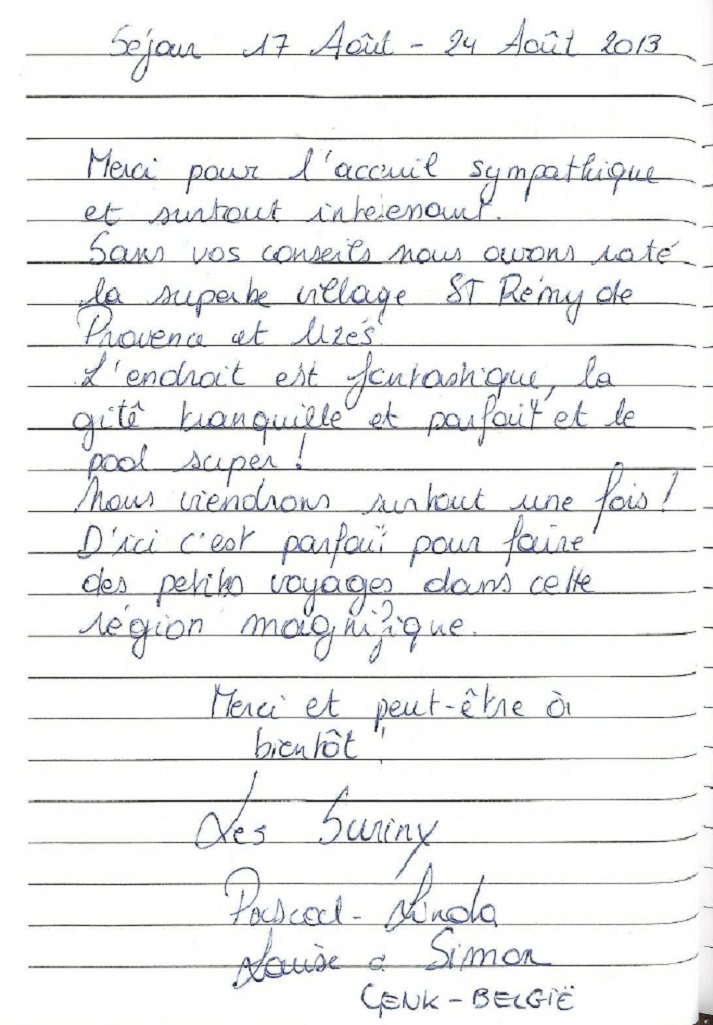 Séjour 17 Août - 24 Août 2013
Merci pour l'accueil sympathique
et surtout intéressant.
Sans vos conseils nous avons raté
la superbe village ST Rémy de
Provence et Uzés
L'endroit est fantastique, la
gîtê tranquille et parfait et le
pool super!
Nous viendrons surtout une fois!
D'ici c'est parfait pour faire
des petits voyages dans cette
région magnifique.
Merci et peut-être à
bientôt!
Les Suriny
Pascal - Linda
Louise & Simon
GENK - BELGIË